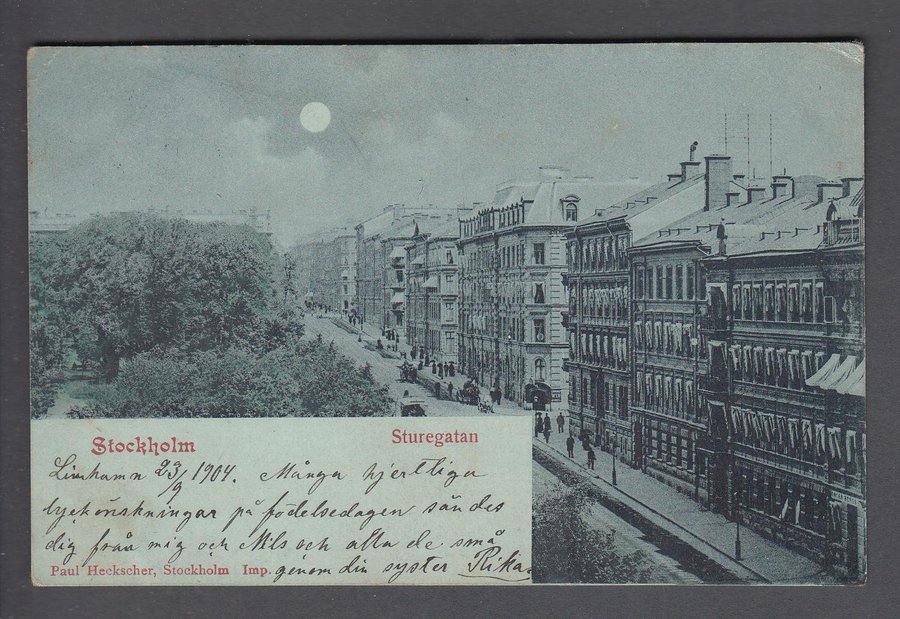 Stockholm
Sturegatan
Limhamn 23/9 1904. Många hjertliga
lyckönskningar på födelsedagen sändes
dig från mig och Nils och alla de små
genom din syster Rika.
Paul Heckscher, Stockholm Imp.